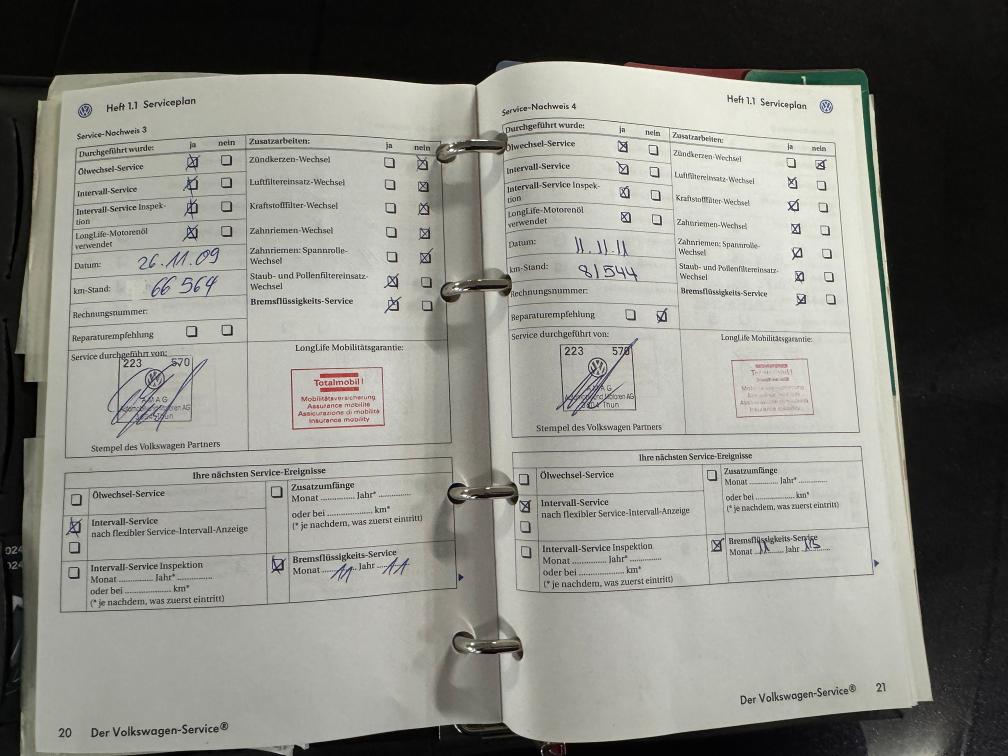 Heft 1.1 Serviceplan
Service-Nachweis 3
Durchgeführt wurde: ja nein
Ölwechsel-Service
Intervall-Service
Intervall-Service Inspek-
tion
LongLife-Motorenöl
verwendet
Datum: 26.11.09
km-Stand: 66 564
Rechnungsnummer:
Reparaturempfehlung
Zusatzarbeiten: ja nein
Zündkerzen-Wechsel
Luftfiltereinsatz-Wechsel
Kraftstofffilter-Wechsel
Zahnriemen-Wechsel
Zahnriemen: Spannrolle-
Wechsel
Staub- und Pollenfiltereinsatz-
Wechsel
Bremsflüssigkeits-Service
Service durchgeführt von:
223 570
AMAG
Automobil- und Motoren AG
3604 Thun
Stempel des Volkswagen Partners
LongLife Mobilitätsgarantie:
Totalmobil!
Mobilitätsversicherung
Assurance mobilité
Assicurazione di mobilità
Insurance mobility
Ihre nächsten Service-Ereignisse
Ölwechsel-Service
Intervall-Service
nach flexibler Service-Intervall-Anzeige
Intervall-Service Inspektion
Monat ............ Jahr* ............
oder bei ............ km*
(* je nachdem, was zuerst eintritt)
Zusatzumfänge
Monat ............ Jahr* ............
oder bei ............ km*
(* je nachdem, was zuerst eintritt)
Bremsflüssigkeits-Service
Monat 11 Jahr 11
20 Der Volkswagen-Service®
Heft 1.1 Serviceplan
Service-Nachweis 4
Durchgeführt wurde: ja nein
Ölwechsel-Service
Intervall-Service
Intervall-Service Inspek-
tion
LongLife-Motorenöl
verwendet
Datum: 11.11.11
km-Stand: 81544
Rechnungsnummer:
Reparaturempfehlung
Zusatzarbeiten: ja nein
Zündkerzen-Wechsel
Luftfiltereinsatz-Wechsel
Kraftstofffilter-Wechsel
Zahnriemen-Wechsel
Zahnriemen: Spannrolle-
Wechsel
Staub- und Pollenfiltereinsatz-
Wechsel
Bremsflüssigkeits-Service
Service durchgeführt von:
223 570
AMAG
Automobil- und Motoren AG
3604 Thun
Stempel des Volkswagen Partners
LongLife Mobilitätsgarantie:
Totalmobil!
Mobilitätsversicherung
Assurance mobilité
Assicurazione di mobilità
Insurance mobility
Ihre nächsten Service-Ereignisse
Ölwechsel-Service
Intervall-Service
nach flexibler Service-Intervall-Anzeige
Intervall-Service Inspektion
Monat ............ Jahr* ............
oder bei ............ km*
(* je nachdem, was zuerst eintritt)
Zusatzumfänge
Monat ............ Jahr* ............
oder bei ............ km*
(* je nachdem, was zuerst eintritt)
Bremsflüssigkeits-Service
Monat 11 Jahr
Der Volkswagen-Service® 21